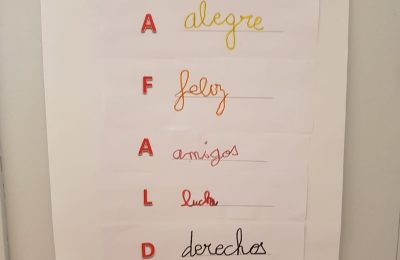 A alegre
F feliz
A amigos
L lucha
D derechos